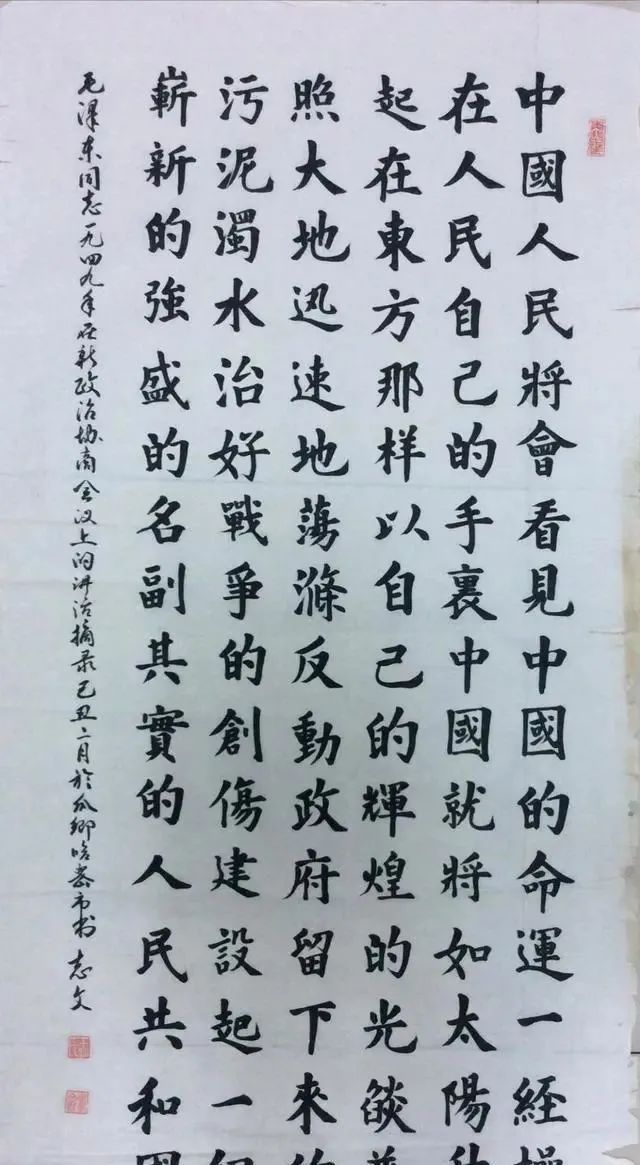 中國人民將會看見中國的命運一經
在人民自己的手裏中國就將如太陽
起在東方那样以自己的輝煌的光燄
照大地迅速地蕩滌反動政府留下來
污泥濁水治好戰爭的創傷建設起一
嶄新的強盛的名副其實的人民共和
毛泽东同志一九四九年在新政治协商会议上的讲话摘录己丑二月於瓜鄉哈密市书 志文